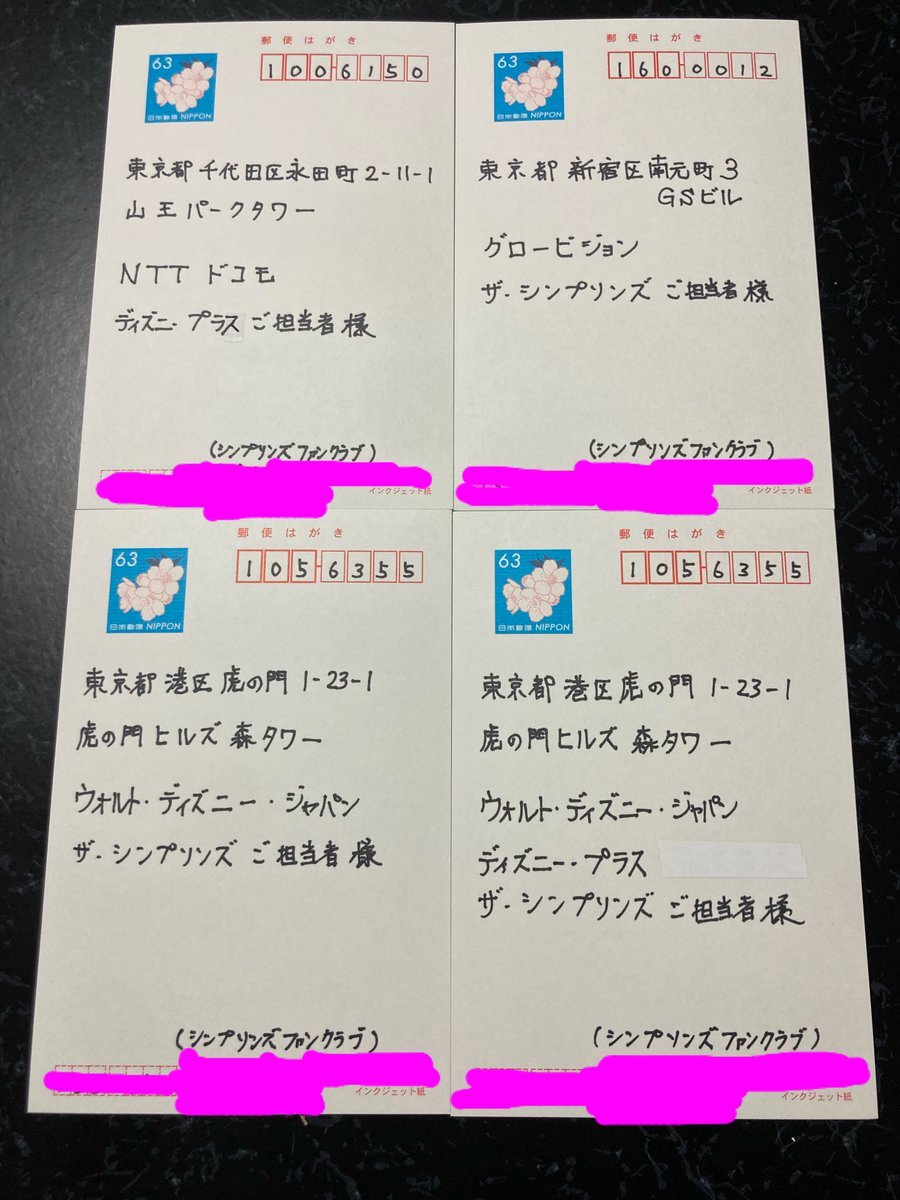 郵便はがき
63
日本郵便 NIPPON
1006150
東京都千代田区永田町2-11-1
山王パークタワー
NTTドコモ
ディズニ・プラス ご担当者様
(シンプソンズファンクラブ)
インクジェット紙
郵便はがき
63
日本郵便 NIPPON
1600012
東京都新宿区南元町3
GSビル
グロービジョン
ザ・シンプソンズ ご担当者様
(シンプソンズファンクラブ)
インクジェット紙
郵便はがき
63
日本郵便 NIPPON
1056355
東京都港区虎の門1-23-1
虎の門ヒルズ 森タワー
ウォルト・ディズニー・ジャパン
ザ・シンプソンズ ご担当者様
(シンプソンズファンクラブ)
インクジェット紙
郵便はがき
63
日本郵便 NIPPON
1056355
東京都港区虎の門1-23-1
虎の門ヒルズ 森タワー
ウォルト・ディズニー・ジャパン
ディズニー・プラス
ザ・シンプソンズ ご担当者様
(シンプソンズファンクラブ)
インクジェット紙